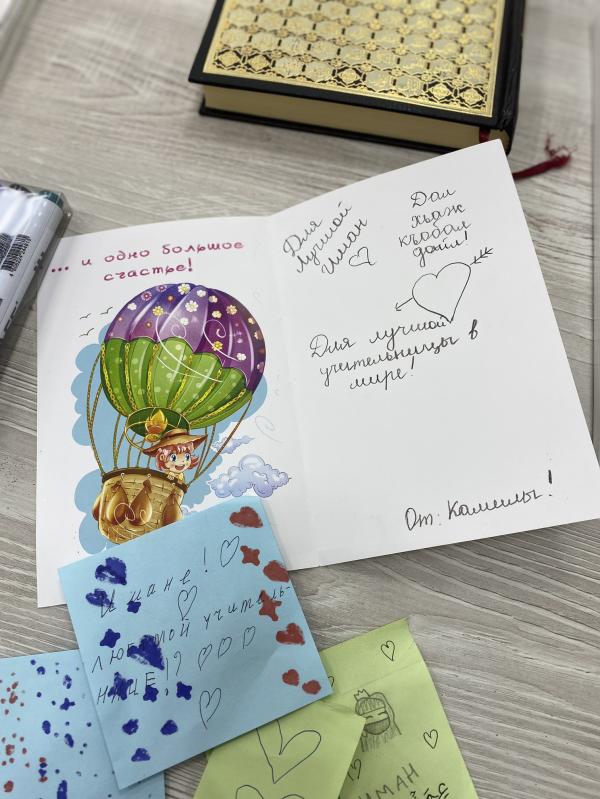 ... и одно большое
счастье!
Для
лучшой
Иман
Дал
хьаж
къобал
дойл!
Для лучшой
учительницы в
мире!
От: Камеллы!
Имане!
любимой учитель-
нице!?
ИМАН